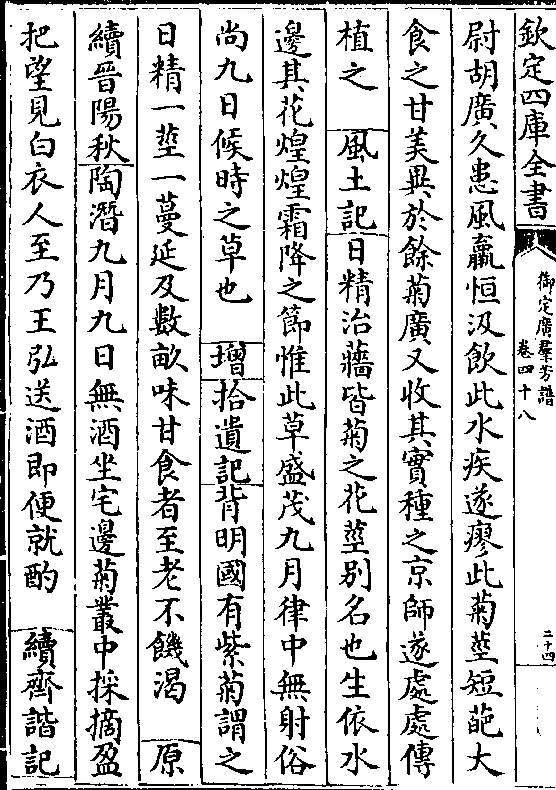 欽定四庫全書
御定廣群芳譜
卷四十八
二十四
尉胡廣久患風羸恒汲飲此水疾遂瘳此菊莖短葩大
食之甘美異於餘菊廣又收其實種之京師遂處處傳
植之　風土記日精治蘠皆菊之花莖別名也生依水
邊其花煌煌霜降之節惟此草盛茂九月律中無射俗
尚九日候時之草也　增拾遺記背明國有紫菊謂之
日精一莖一蔓延及數畝味甘食者至老不饑渴　原
續晉陽秋陶潛九月九日無酒坐宅邊菊叢中採摘盈
把望見白衣人至乃王弘送酒即便就酌　續齊諧記